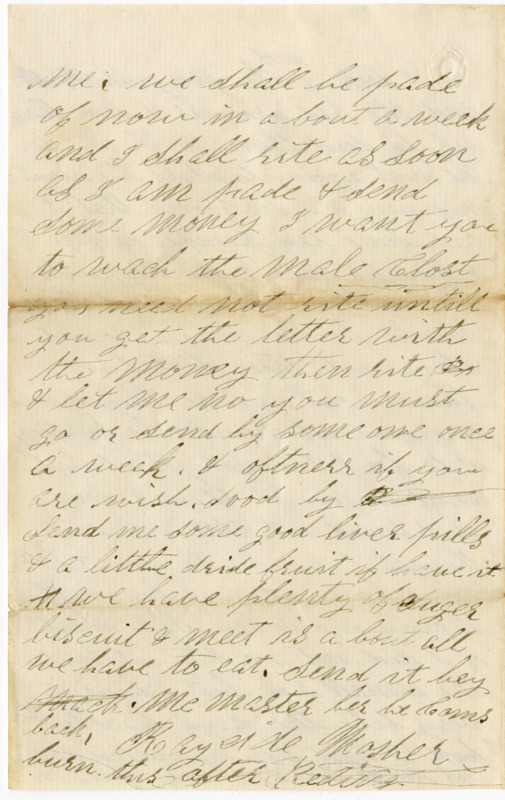 me; we shall be pade
of now in a bout a week
and I shall rite as soon
as I am pade & send
some money I want you
to wach the male Clost
you need not rite untill
you get the letter with
the money then rite
& let me no you must
go or send by some one once
a week. & oftnerr if you
are wish. Good by
Send me some good liver pills
& a little dride fruit if have it
we have plenty of suger
biscuit & meet is a bout all
we have to eat. Send it bey
Mc master ber he Coms
back, Rayside Mosher
burn this after